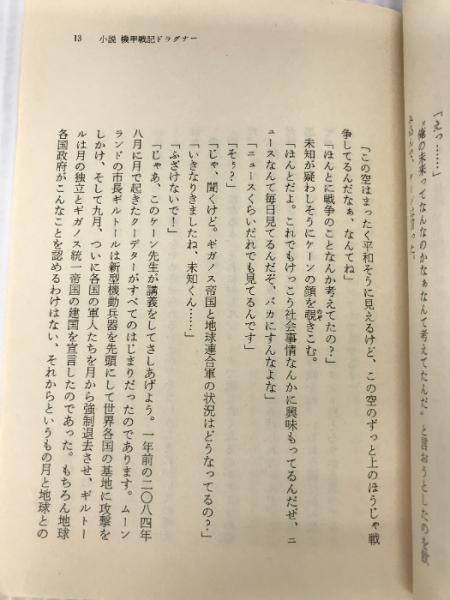 13　小説 機甲戦記ドラグナー
「えっ……」
〝俺の未来ってなんなのかなぁなんて考えてたんだ〟と言おうとしたのを飲
「この空はまったく平和そうに見えるけど、この空のずっと上のほうじゃ戦
争してるんだなぁ、なんてね」
「ほんとに戦争のことなんか考えてたの？」
未知が疑わしそうにケーンの顔を覗きこむ。
「ほんとだよ。これでもけっこう社会事情なんかに興味もってるんだぜ、ニ
ュースなんて毎日見てるんだぞ、バカにすんなよな」
「ニュースくらいだれでも見てるんです」
「そぅ？」
「じゃ、聞くけど。ギガノス帝国と地球連合軍の状況はどうなってるの？」
「いきなりきましたね、未知くん……」
「ふざけないで！」
「じゃあ、このケーン先生が講義をしてさしあげよう。一年前の二〇八四年
八月に月で起きたクーデターがすべてのはじまりだったのであります。ムーン
ランドの市長ギルトールは新型機動兵器を先頭にして世界各国の基地に攻撃を
しかけ、そして九月、ついに各国の軍人たちを月から強制退去させ、ギルトー
ルは月の独立とギガノス統一帝国の建国を宣言したのであった。もちろん地球
各国政府がこんなことを認めるわけはない、それからというもの月と地球との